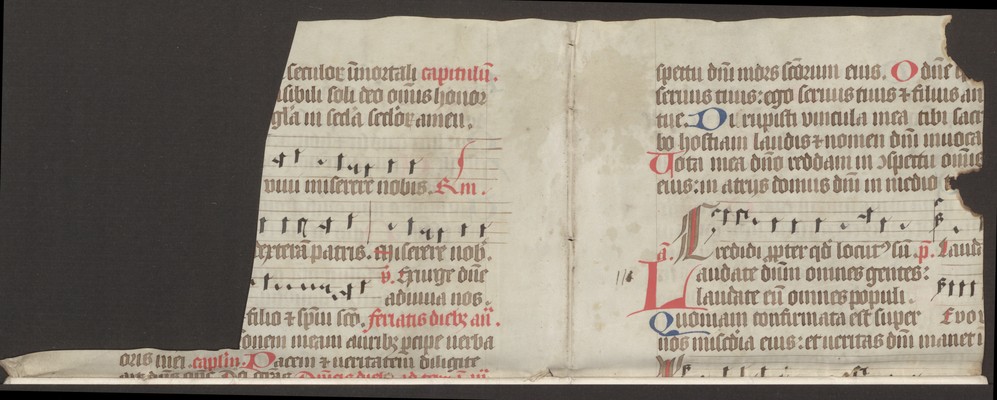 seculoꝝ īmortali capitulū.
sibili soli deo om̄is honor
gl̄a in scl̄a scl̄oꝝ amen.
viui miserere nobis. R̃m.
dexterā patris. Miserere nob̄.
ꝟ. Exurge dn̄e
adiuua nos.
filio ⁊ sp̄ui sc̄o. feriatis diebꝫ añ.
onem meam auribꝫ ꝑcipe uerba
oris mei. capl̄m. Pacem ⁊ ueritatem diligite
spectu dn̄i mors sc̄orum eius. O dn̄e
seruus tuus: ego seruus tuus ⁊ filius an
tue. Di rupisti vincula mea tibi sac
bo hostiam laudis ⁊ nomen dn̄i inuoca
Vota mea dn̄o reddam in ↄspectu om̄is
eius: in atrijs domus dn̄i in medio
a. Credidi ꝓpter qd̄ locutꝰ sū. p̄. Lauda
Laudate dn̄m omnes gentes:
laudate eū omnes populi.
Quoniam confirmata est super Evo
nos mīscd̄ia eius: et ueritas dn̄i manet i